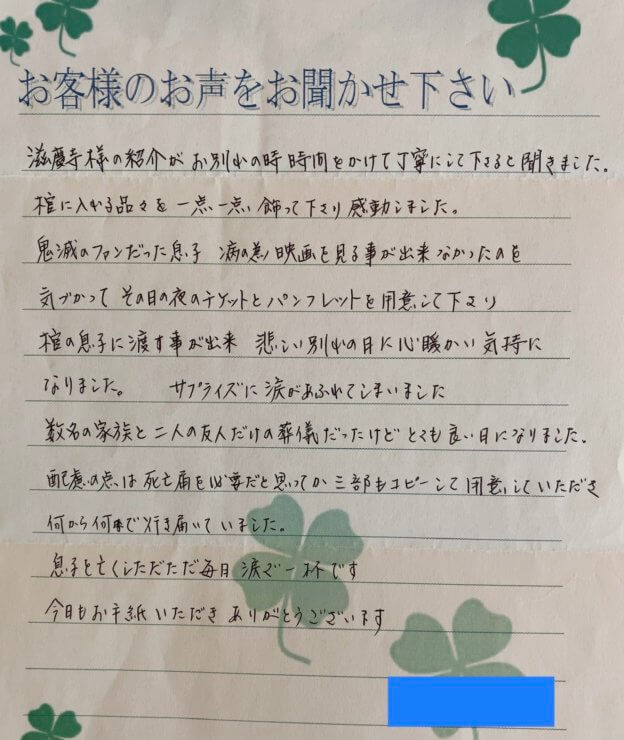 お客様のお声をお聞かせ下さい
滋慶寺様の紹介が お別れの時 時間をかけて丁寧にして下さると聞きました。
棺に入れる品々を 一点一点 飾って下さり 感動しました。
鬼滅のファンだった息子 病の為 映画を見る事が出来なかったのを
気づかって その日の夜のチケットとパンフレットを用意して下さり
棺の息子に渡す事が出来 悲しい別れの日に心暖かい気持に
なりました。 サプライズに涙があふれてしまいました
数名の家族と二人の友人だけの葬儀だったけど とても良い日になりました。
配慮の点は 死亡届を必要だと思ってか 三部もコピーして用意していただき
何から何まで行き届いていました。
息子を亡くしただただ毎日 涙で一杯です
今日もお手紙いただき ありがとうございます